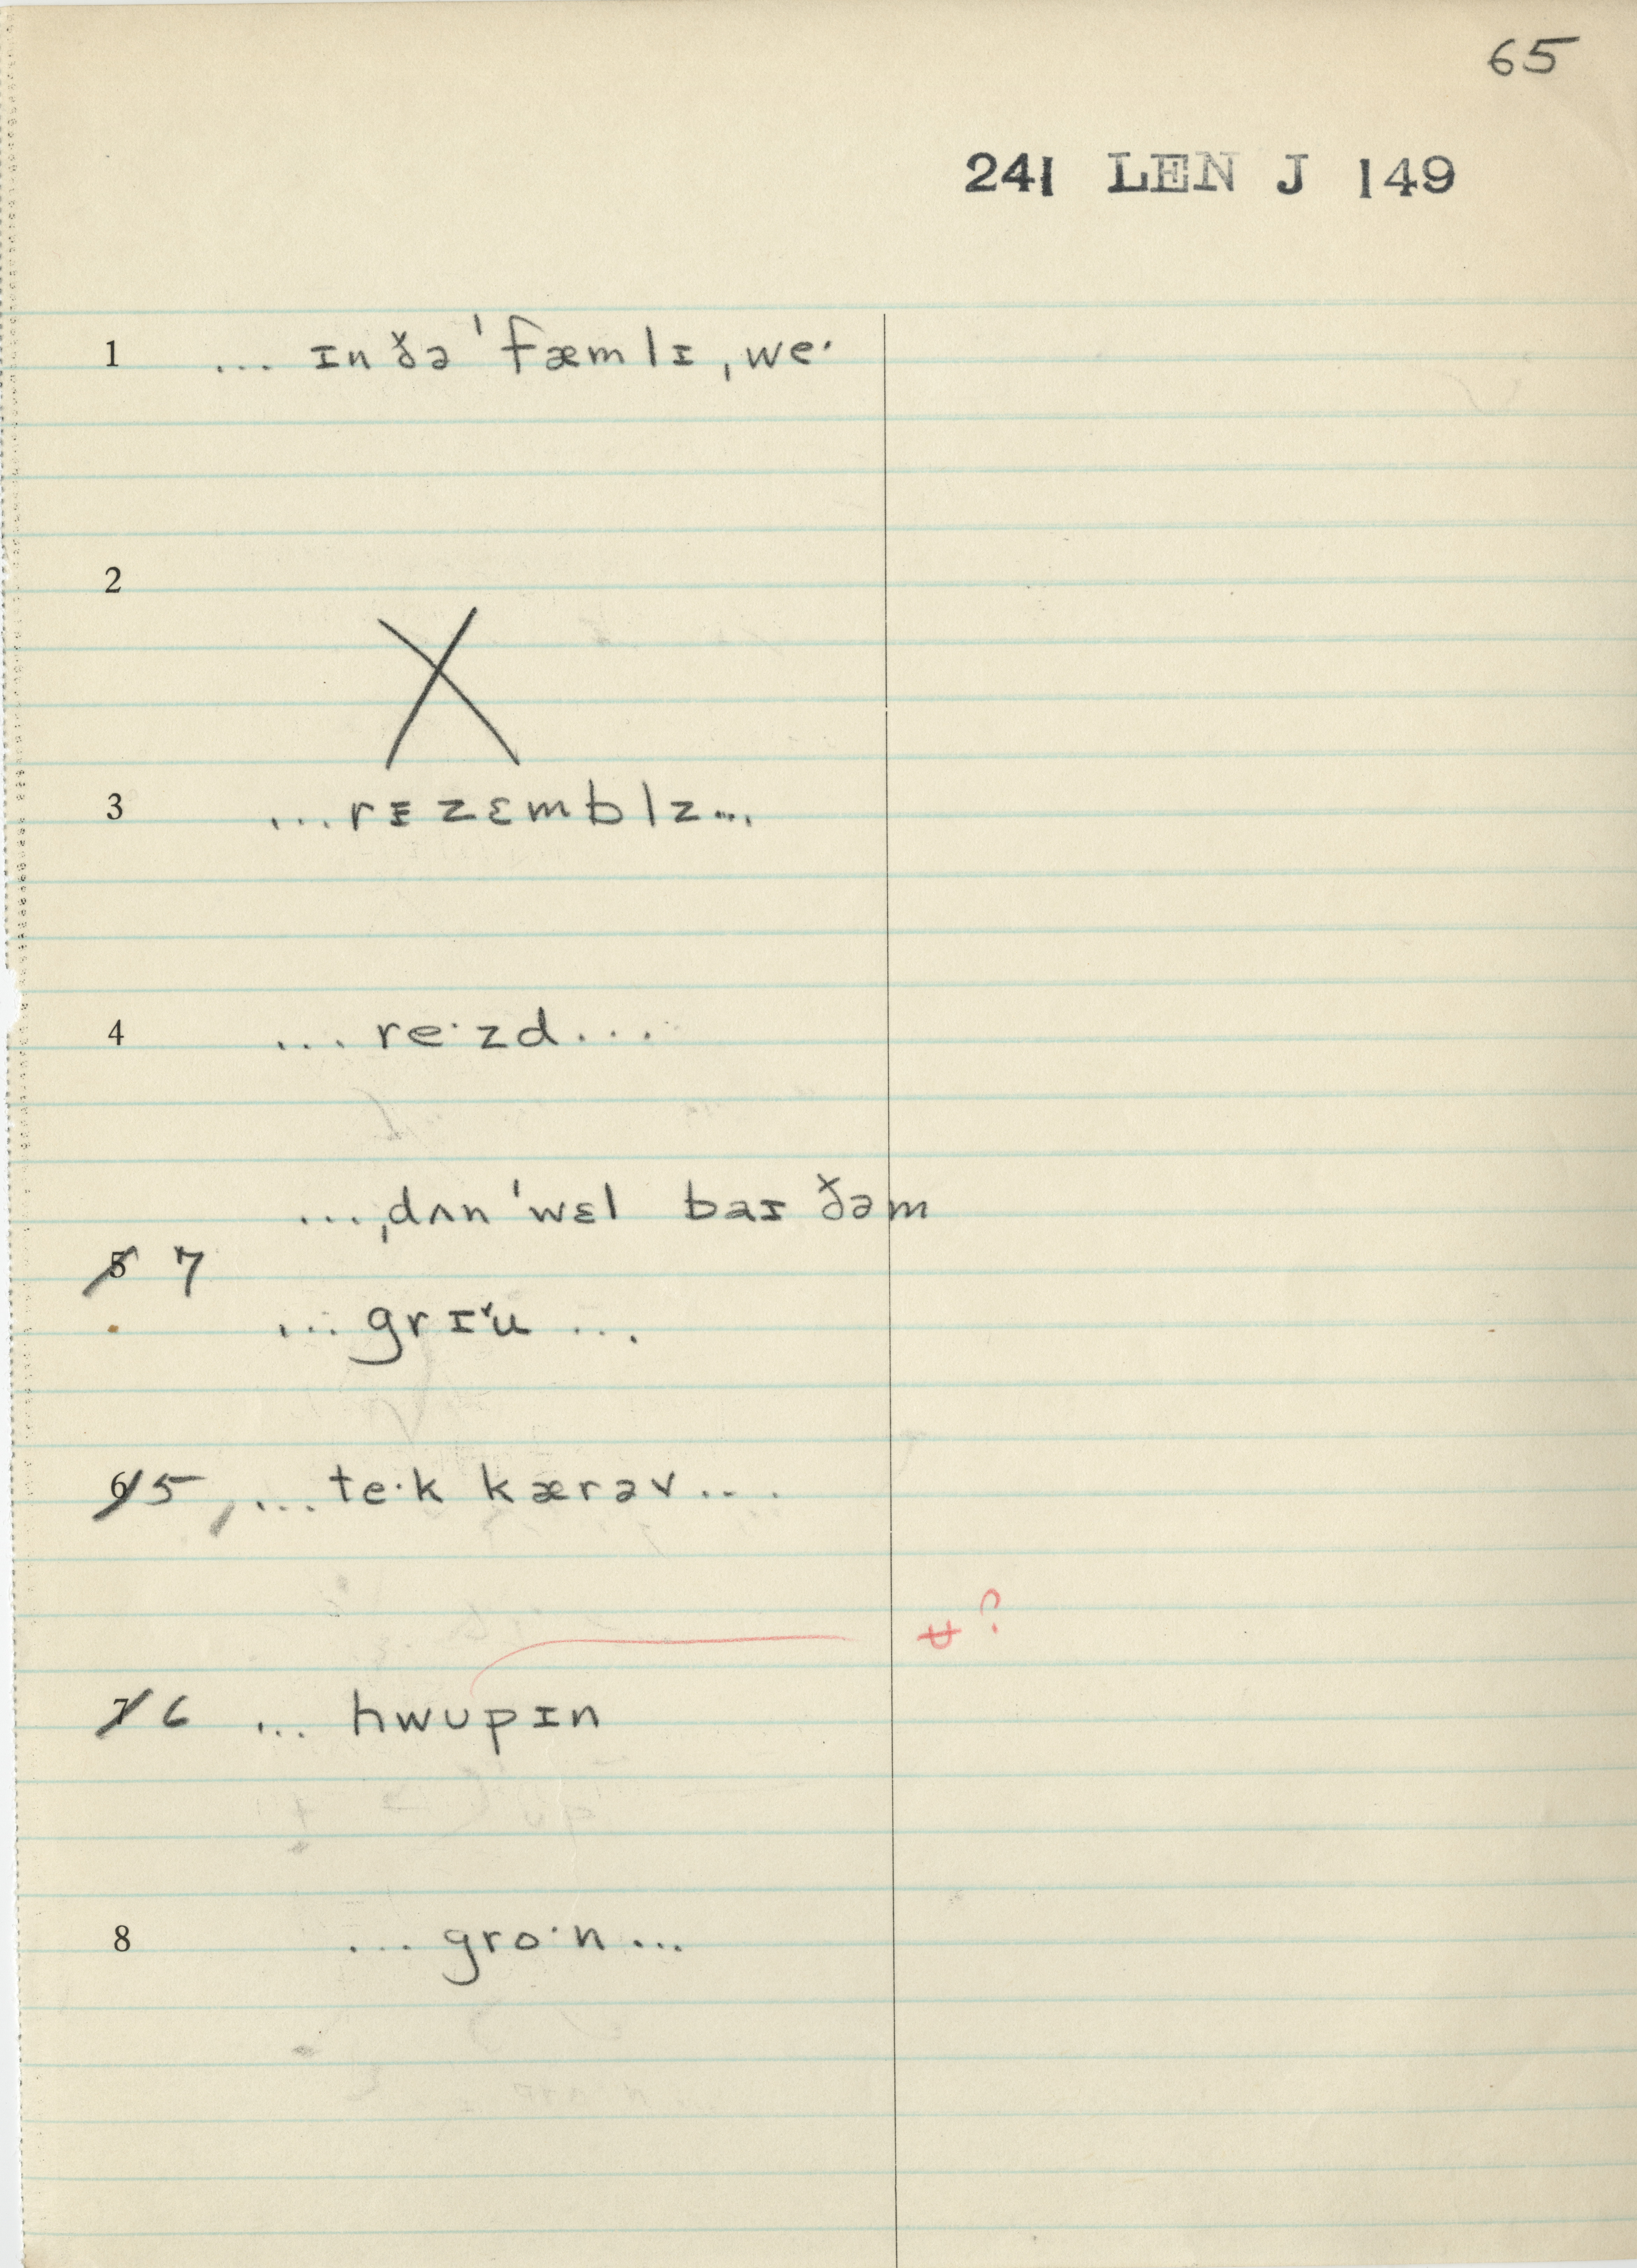 65
241 LEN J 149
1 ... ɪn ðə ˈfæmlɪ ˌweˑ
2
X
3 ... rɪzɛmblz ...
4 ... reˑzd ...
... ˌdʌn ˈwɛl baɪ ðəm
5 7
... grɪˇu ...
6 5, ... teˑk kærəv ...
ʉ ?
7 6 ... hwupɪn
8 ... groˑn ...